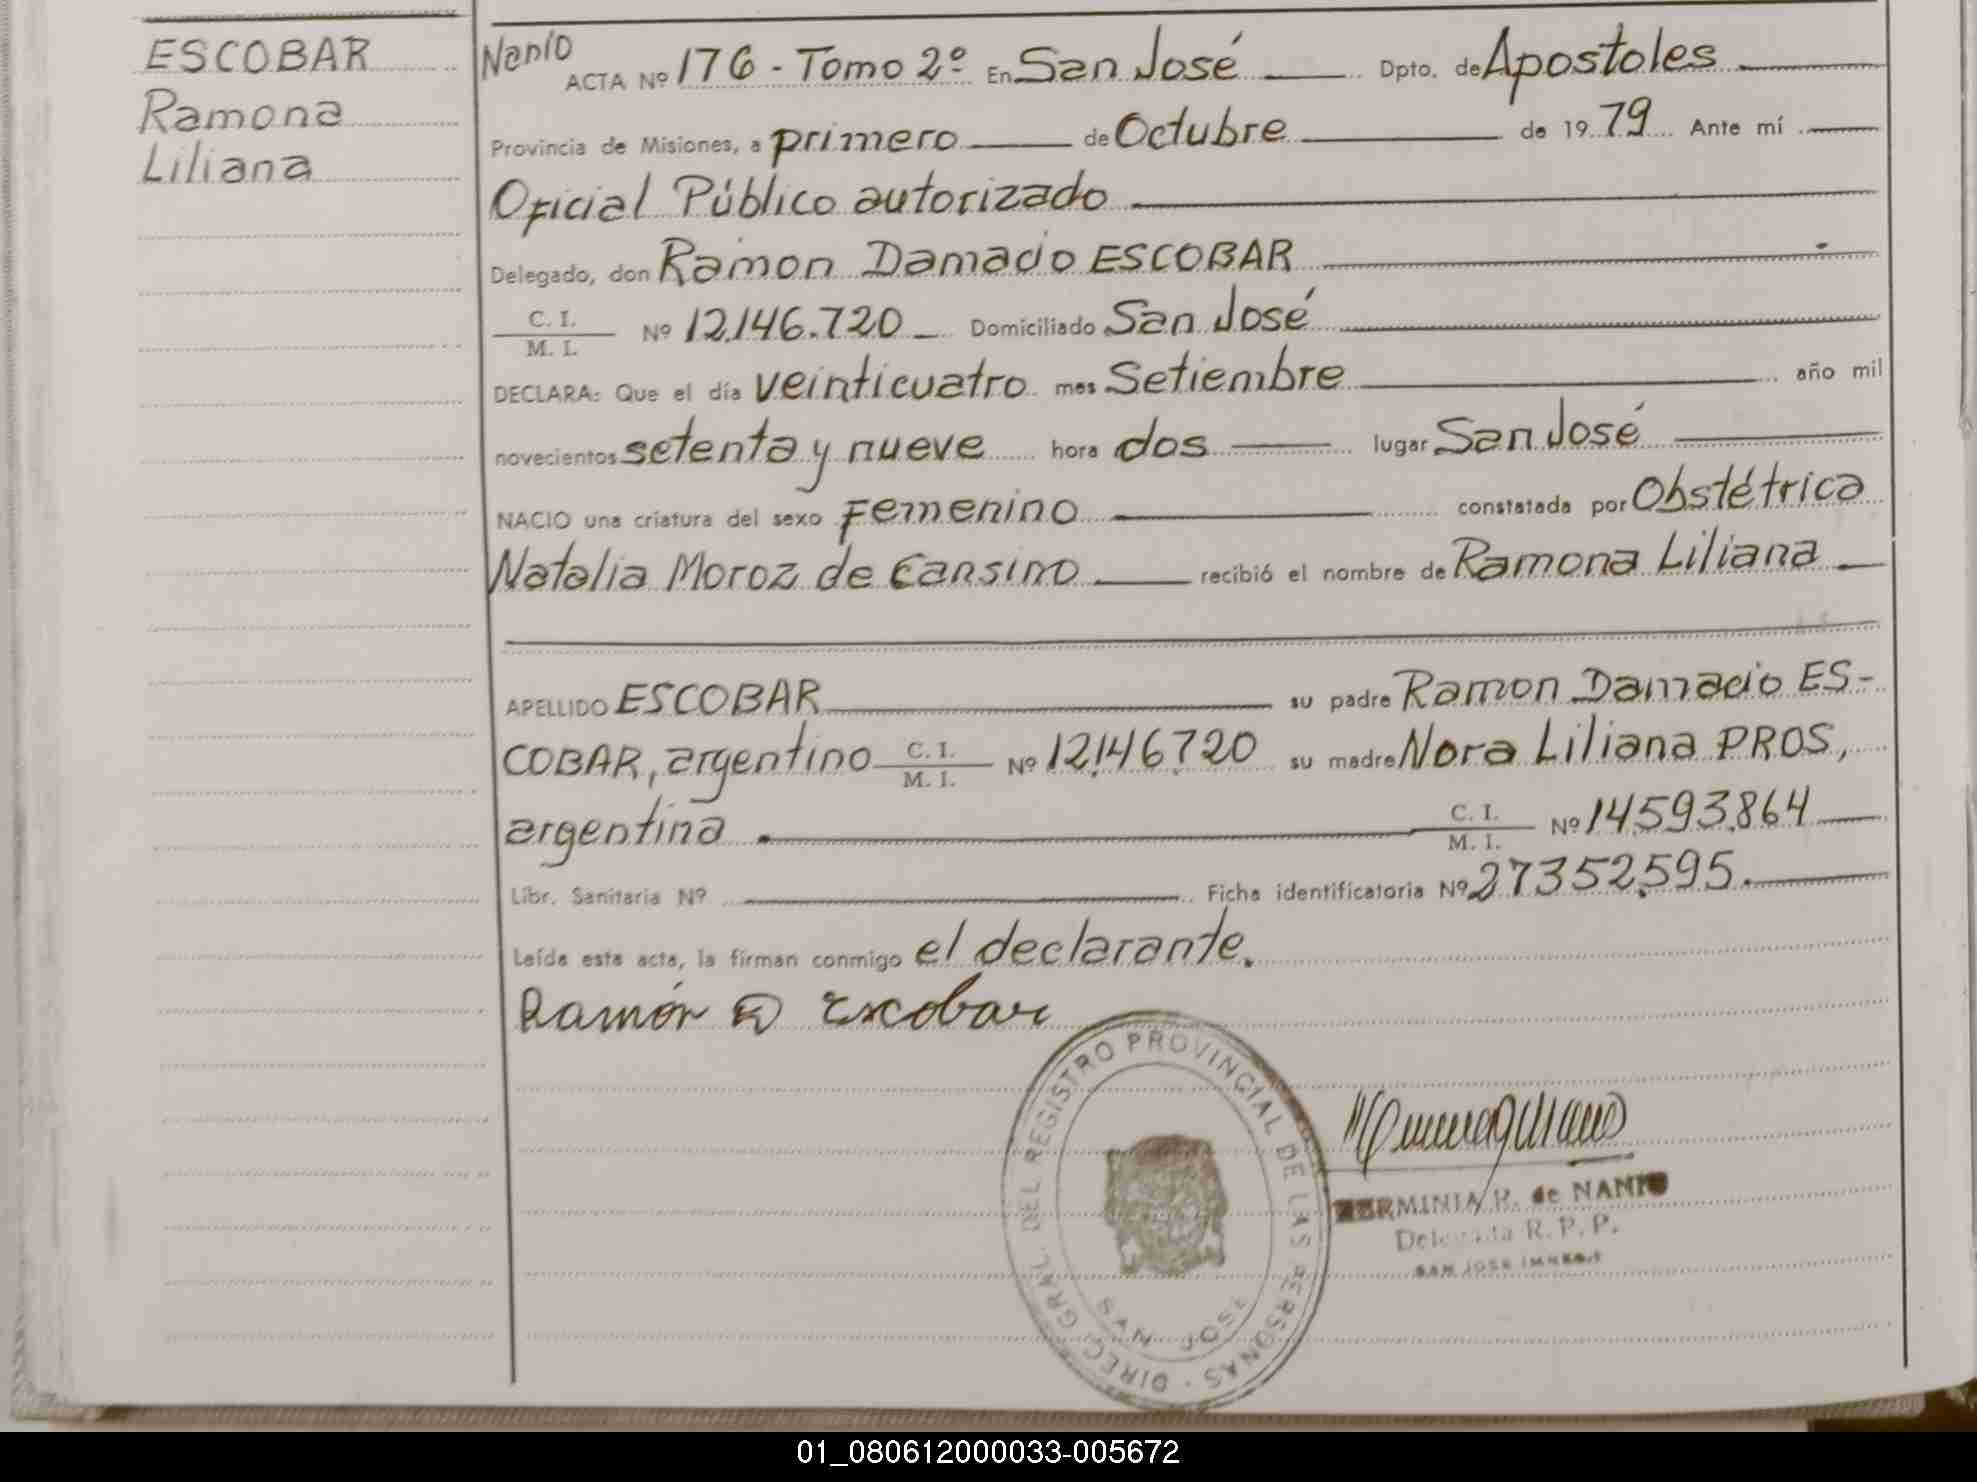 ESCOBAR
Ramona
Liliana
Nanio
ACTA Nº 176 - Tomo 2º En San José Dpto. de Apostoles
Provincia de Misiones, a primero de Octubre de 1979 Ante mí
Oficial Público autorizado
Delegado, don Ramon Damacio ESCOBAR
C. I.
M. I. Nº 12.146.720 Domiciliado San José
DECLARA: Que el día veinticuatro mes Setiembre año mil
novecientos setenta y nueve hora dos lugar San José
NACIO una criatura del sexo Femenino constatada por Obstétrica
Natalia Moroz de Cansino recibió el nombre de Ramona Liliana
APELLIDO ESCOBAR su padre Ramon Damacio ES-
COBAR, argentino C. I.
M. I. Nº 12.146.720 su madre Nora Liliana PROS,
argentina C. I.
M. I. Nº 14.593.864
Libr. Sanitaria Nº Ficha identificatoria Nº 27352.595.
Leída esta acta, la firman conmigo el declarante.
Ramón D Escobar
DIREC. GRAL. DEL REGISTRO PROVINCIAL DE LAS PERSONAS
SAN JOSE
HERMINIA R. de NANIO
Delegada R. P. P.
SAN JOSE
01_080612000033-005672